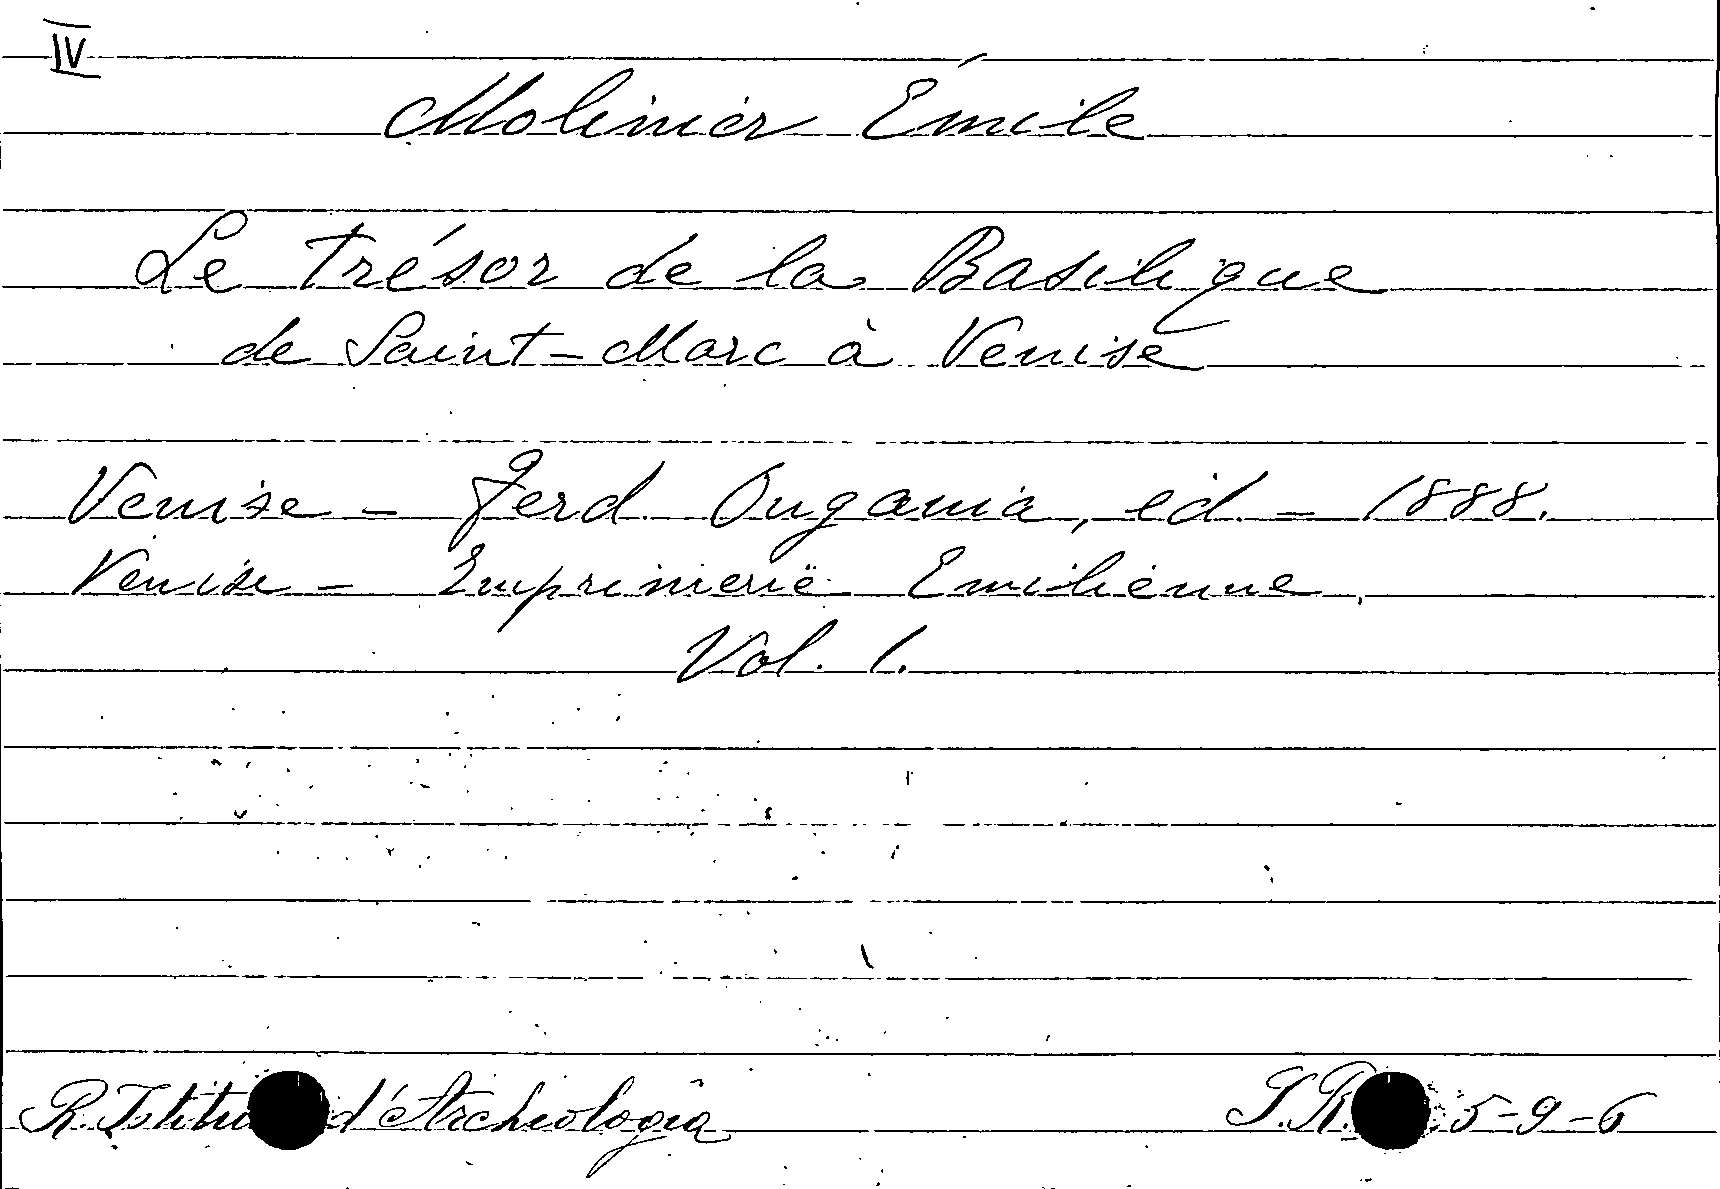 IV
Molinier Émile
Le Trésor de la Basilique
de Saint-Marc à Venise
Venise - Ferd Ongania, éd. - 1888.
Venise - Imprimerie Emilienne,
Vol. 1.
R. d'Archeologia
S.R. 5-9-6